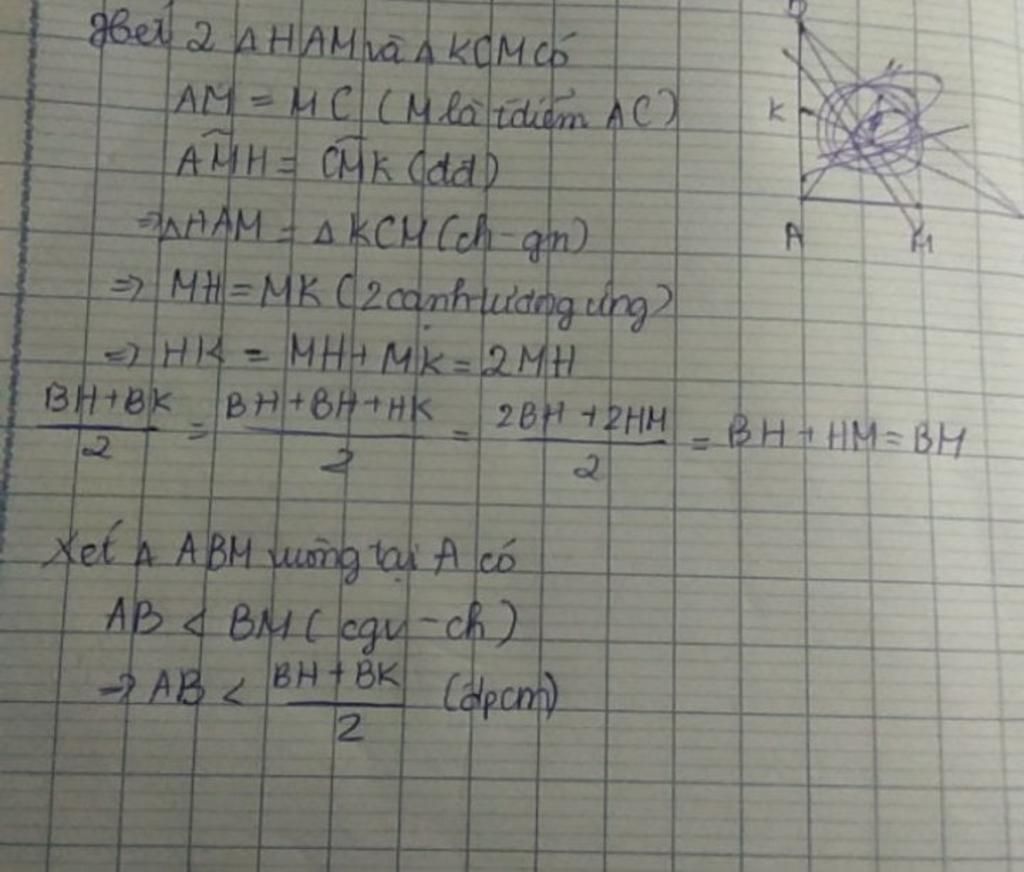 Xét 2 ΔHAM và ΔKCM có
AM = MC (M là tđiểm AC)
AMH = CMK (dd)
⇒ ΔHAM = ΔKCM (ch - gn)
⇒ MH = MK (2 cạnh tương ứng)
⇒ HK = MH + MK = 2MH
(BH + BK)/2 = (BH + BH + HK)/2 = (2BH + 2HM)/2 = BH + HM = BM
Xét Δ ABM vuông tại A có
AB < BM (cgv - ch)
⇒ AB < (BH + BK)/2 (đpcm)
K
A
M